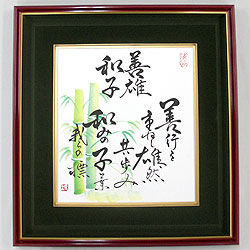 善雄
和子
善行を
重ねし雄然
共歩み
和みの子業
我らの標